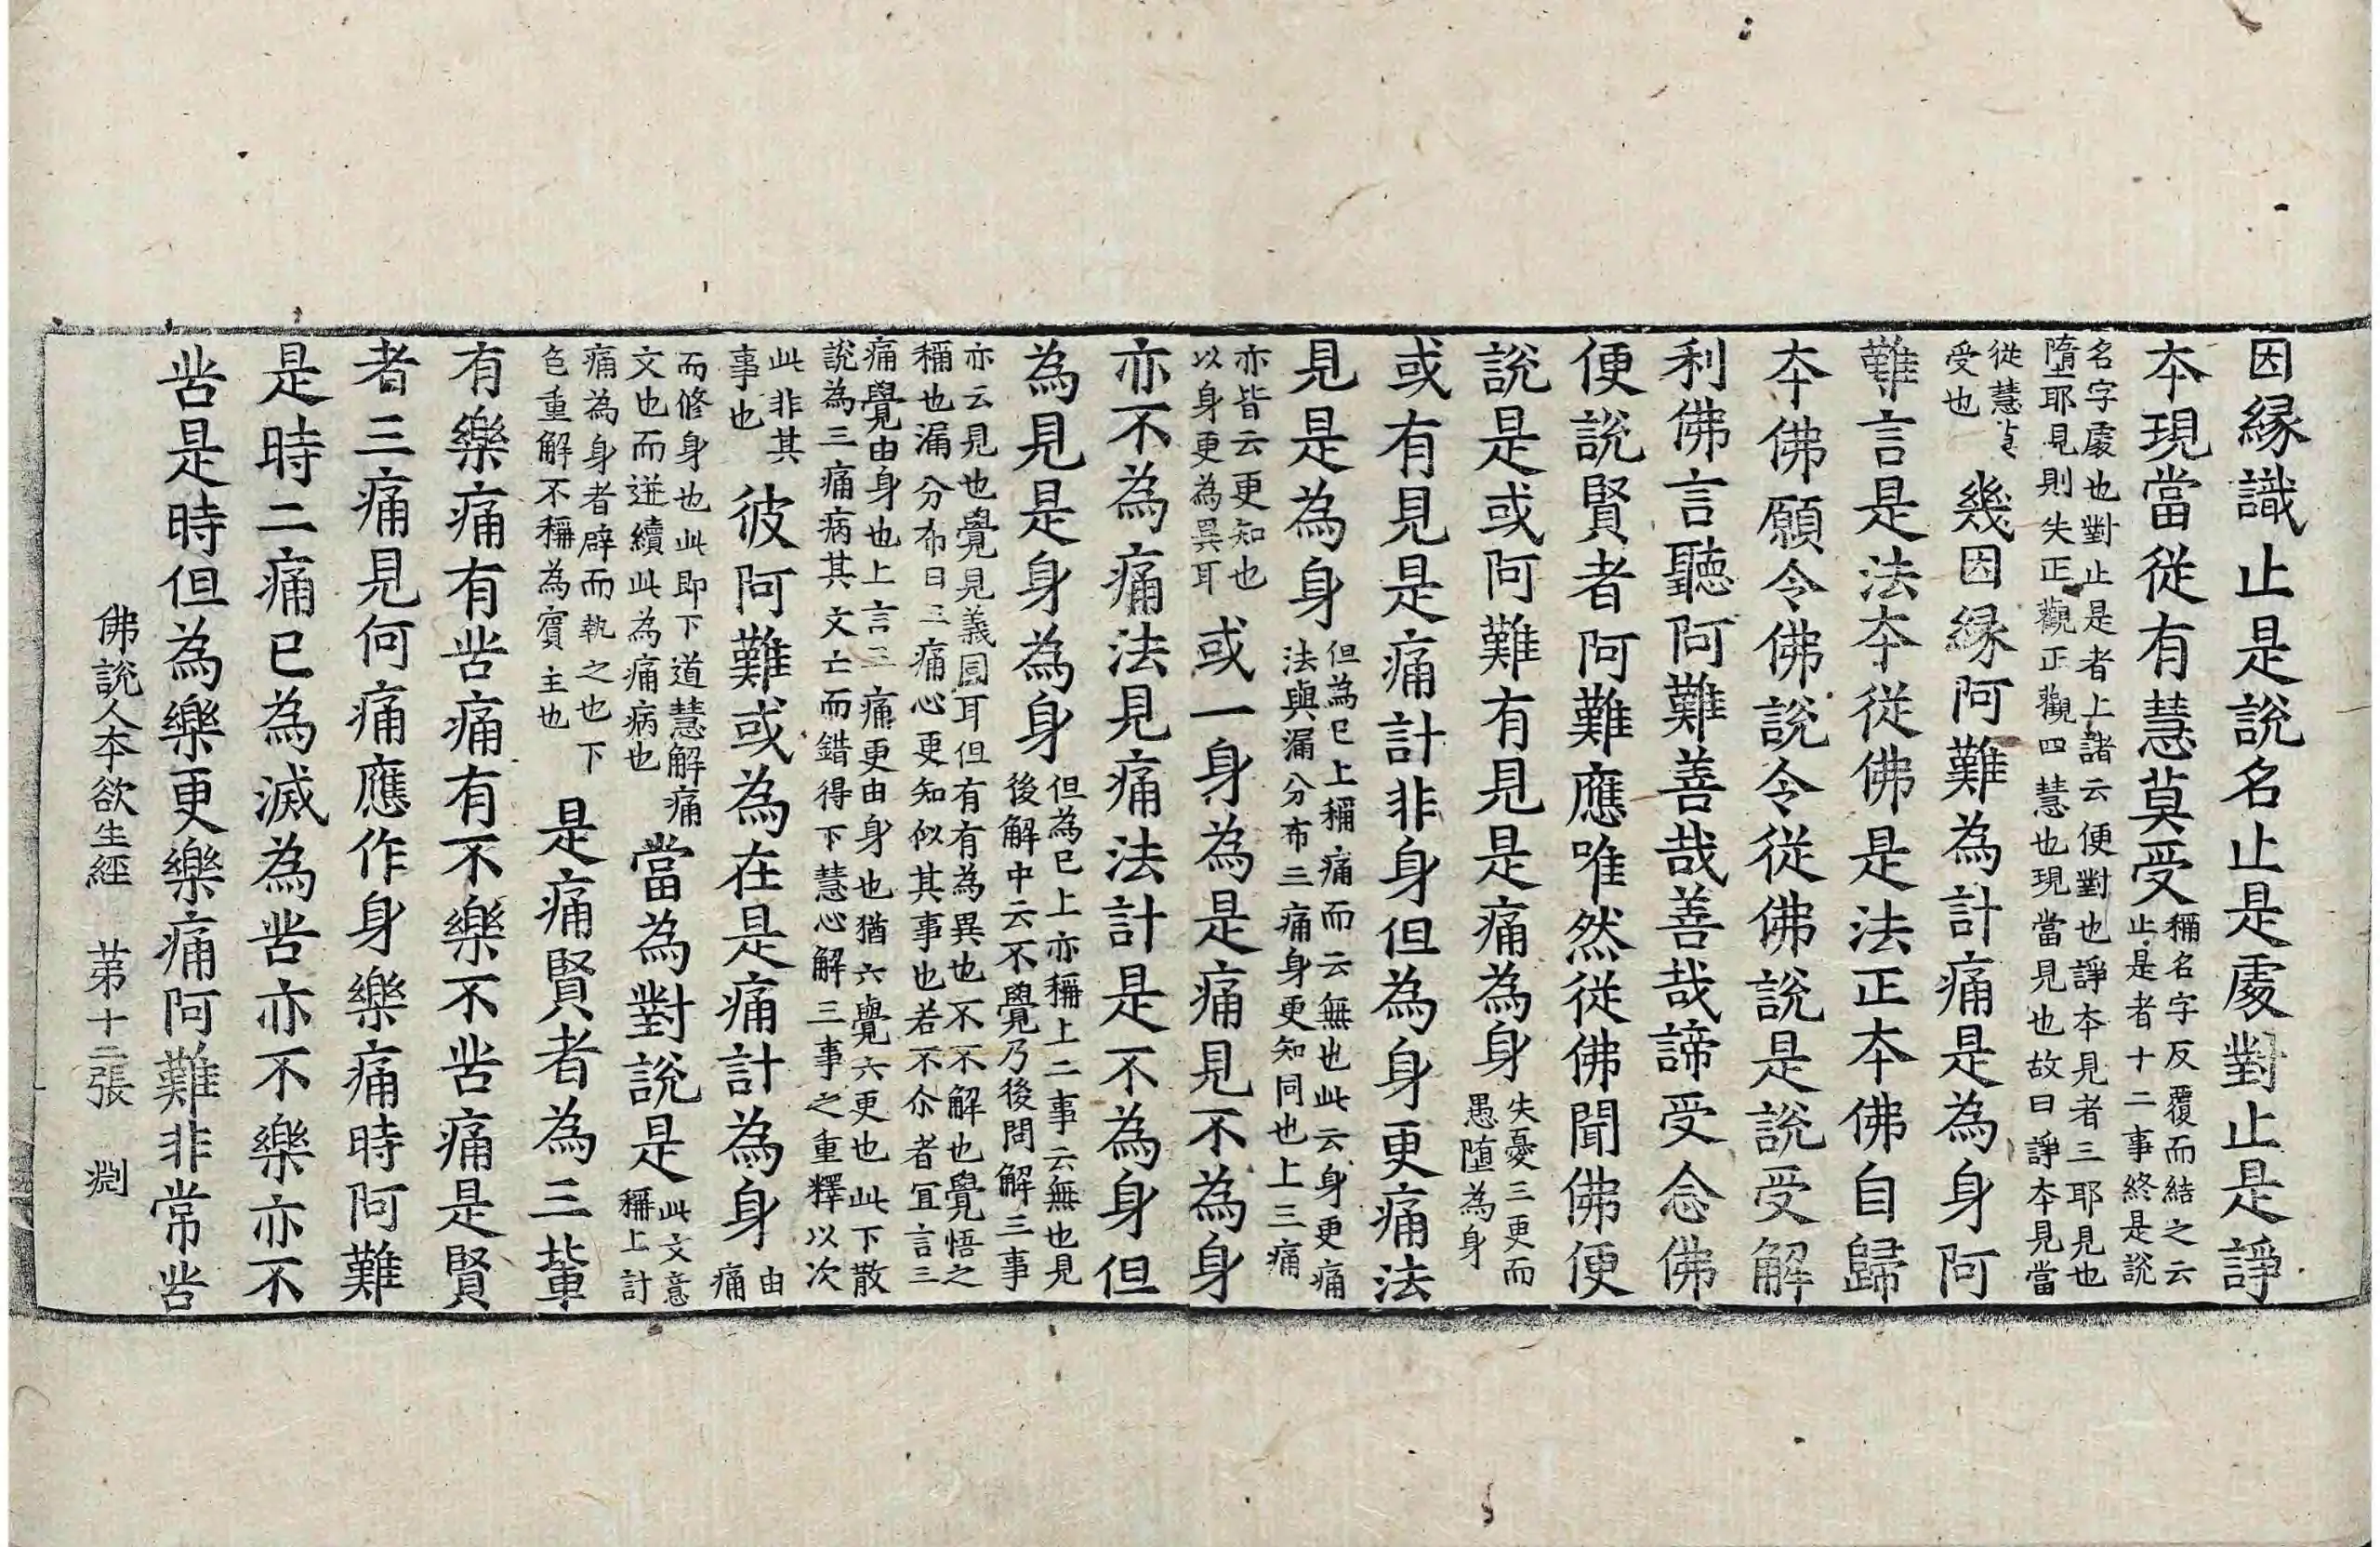 因緣識止是說名止是處對止是諍
本現當從有慧莫受稱名字反覆而結之云止是者十二事終是說
名字處也對止是者上諸云便對也諍本見者三耶見也墮耶見則失正觀正觀四慧也現當見也故曰諍本見當
從慧莫受也幾因緣阿難為計痛是為身阿
難言是法本從佛是法正本佛自歸
本佛願令佛說令從佛說是說受解
利佛言聽阿難善哉善哉諦受念佛
便說賢者阿難應唯然從佛聞佛便
說是或阿難有見是痛為身失憂三更而愚墮為身
或有見是痛計非身但為身更痛法
見是為身但為已上稱痛而云無也此云身更痛法與漏分布三痛身更知同也上三痛
亦皆云更知也以身更為異耳或一身為是痛見不為身
亦不為痛法見痛法計是不為身但
為見是身為身但為已上亦稱上二事云無也見後解中云不覺乃後問解三事
亦云見也覺見義圓耳但有有為異也不不解也覺悟之稱也漏分布曰三痛心更知似其事也若不尒者宜言三
痛覺由身也上言三痛更由身也猶六覺六更也此下散說為三痛病其文亡而錯得下慧心解三事之重釋以次
此非其事也彼阿難或為在是痛計為身由痛
而修身也此即下道慧解痛文也而迸續此為痛病也當為對說是此文意稱上計
痛為身者辟而執之也下色重解不稱為賓主也是痛賢者為三輩
有樂痛有苦痛有不樂不苦痛是賢
者三痛見何痛應作身樂痛時阿難
是時二痛已為滅為苦亦不樂亦不
苦是時但為樂更樂痛阿難非常苦
佛說人本欲生經 苐十二張 淵